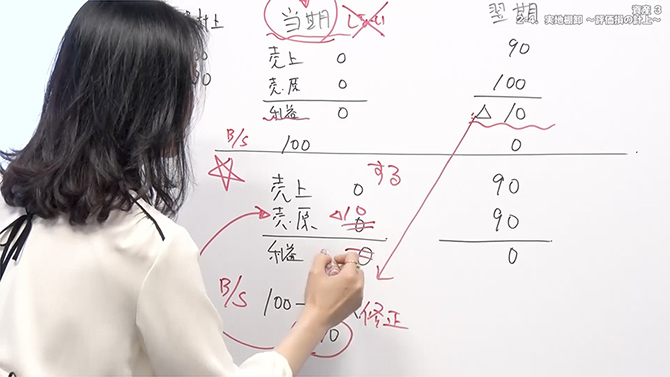 資産 3
2-4. 実地棚卸 ～評価損の計上～
当期 しない
売上 0
売原 0
利益 0
B/S 100
翌期
90
100
△ 10
0
する
売上 0
売・原 △10 0
利益 0
B/S 100-
修正
90
90
0